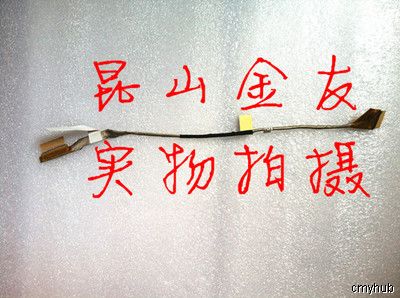 昆山金友
实物拍摄
cmyhub